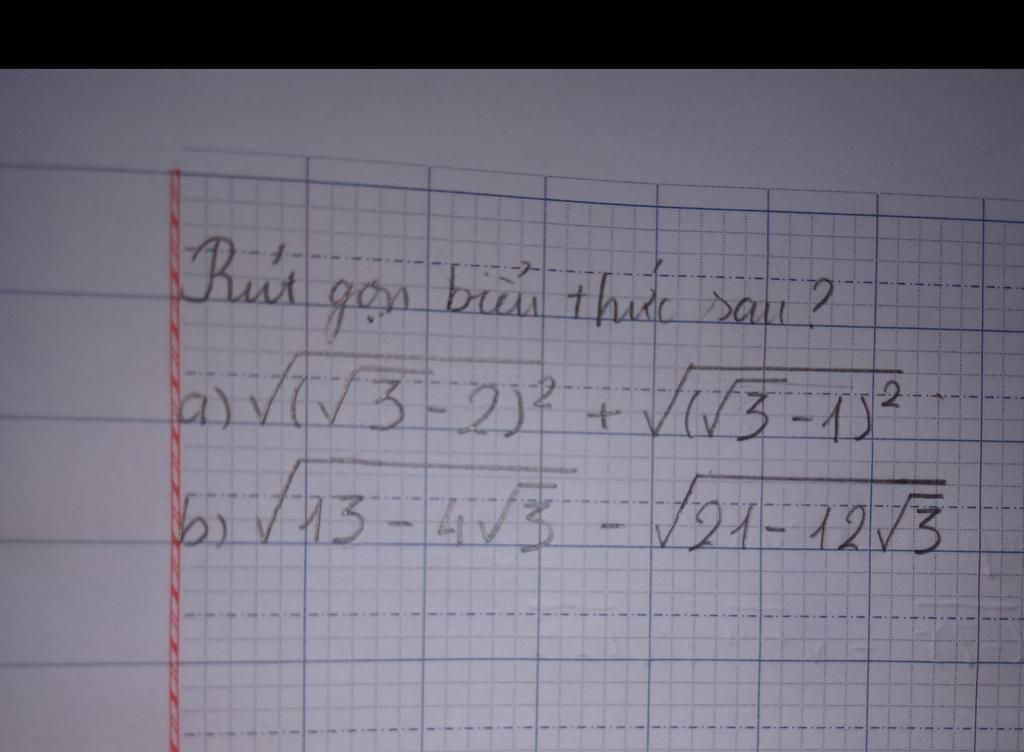 Rút gọn biểu thức sau?
a) √(√3 - 2)² + √(√3 - 1)²
b) √13 - 4√3 - √21 - 12√3